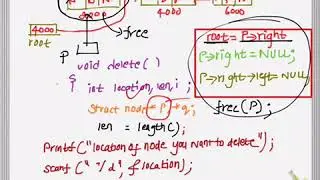 2000 4000 6000
4000
root
free
P
root = P→right
P→right = NULL;
P→right→left = NULL
free(P);
void delete( )
{ int location, len, i;
struct node *P, *q;
len = length( );
Printf("location of node you want to delete");
scanf("%d", &location);